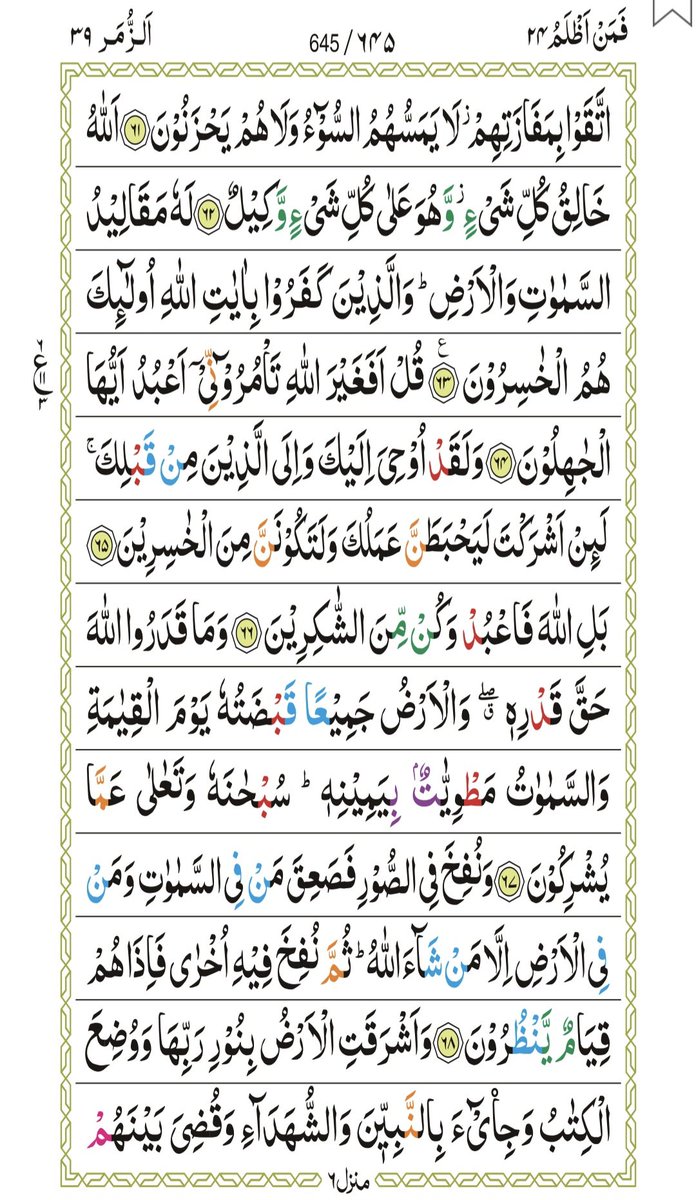 فَمَنْ اَظْلَمُ ٢٤ 645 / ٦٤٥ اَلزُّمَر ٣٩
اتَّقَوْا بِمَفَازَتِهِمْ ز لَا يَمَسُّهُمُ السُّوْٓءُ وَلَا هُمْ يَحْزَنُوْنَ ﴿٦١﴾ اَللّٰهُ
خَالِقُ كُلِّ شَیْءٍ ز وَّهُوَ عَلٰى كُلِّ شَیْءٍ وَّكِيْلٌ ﴿٦٢﴾ لَهٗ مَقَالِيْدُ
السَّمٰوٰتِ وَالْاَرْضِ ؕ وَالَّذِيْنَ كَفَرُوْا بِاٰيٰتِ اللّٰهِ اُولٰٓئِكَ
هُمُ الْخٰسِرُوْنَ ﴿٦٣﴾ ع قُلْ اَفَغَيْرَ اللّٰهِ تَاْمُرُوْٓنِّیْٓ اَعْبُدُ اَيُّهَا
الْجٰهِلُوْنَ ﴿٦٤﴾ وَلَقَدْ اُوْحِیَ اِلَيْكَ وَاِلَى الَّذِيْنَ مِنْ قَبْلِكَ ۚ
لَئِنْ اَشْرَكْتَ لَيَحْبَطَنَّ عَمَلُكَ وَلَتَكُوْنَنَّ مِنَ الْخٰسِرِيْنَ ﴿٦٥﴾
بَلِ اللّٰهَ فَاعْبُدْ وَكُنْ مِّنَ الشّٰكِرِيْنَ ﴿٦٦﴾ وَمَا قَدَرُوا اللّٰهَ
حَقَّ قَدْرِهٖ ۖ ق وَالْاَرْضُ جَمِيْعًا قَبْضَتُهٗ يَوْمَ الْقِيٰمَةِ
وَالسَّمٰوٰتُ مَطْوِيّٰتٌۢ بِيَمِيْنِهٖ ؕ سُبْحٰنَهٗ وَتَعٰلٰى عَمَّا
يُشْرِكُوْنَ ﴿٦٧﴾ وَنُفِخَ فِی الصُّوْرِ فَصَعِقَ مَنْ فِی السَّمٰوٰتِ وَمَنْ
فِی الْاَرْضِ اِلَّا مَنْ شَآءَ اللّٰهُ ؕ ثُمَّ نُفِخَ فِيْهِ اُخْرٰى فَاِذَا هُمْ
قِيَامٌ يَّنْظُرُوْنَ ﴿٦٨﴾ وَاَشْرَقَتِ الْاَرْضُ بِنُوْرِ رَبِّهَا وَوُضِعَ
الْكِتٰبُ وَجِایْٓءَ بِالنَّبِيّٖنَ وَالشُّهَدَآءِ وَقُضِیَ بَيْنَهُمْ
٦
ع
١١
٣
منزل ٦